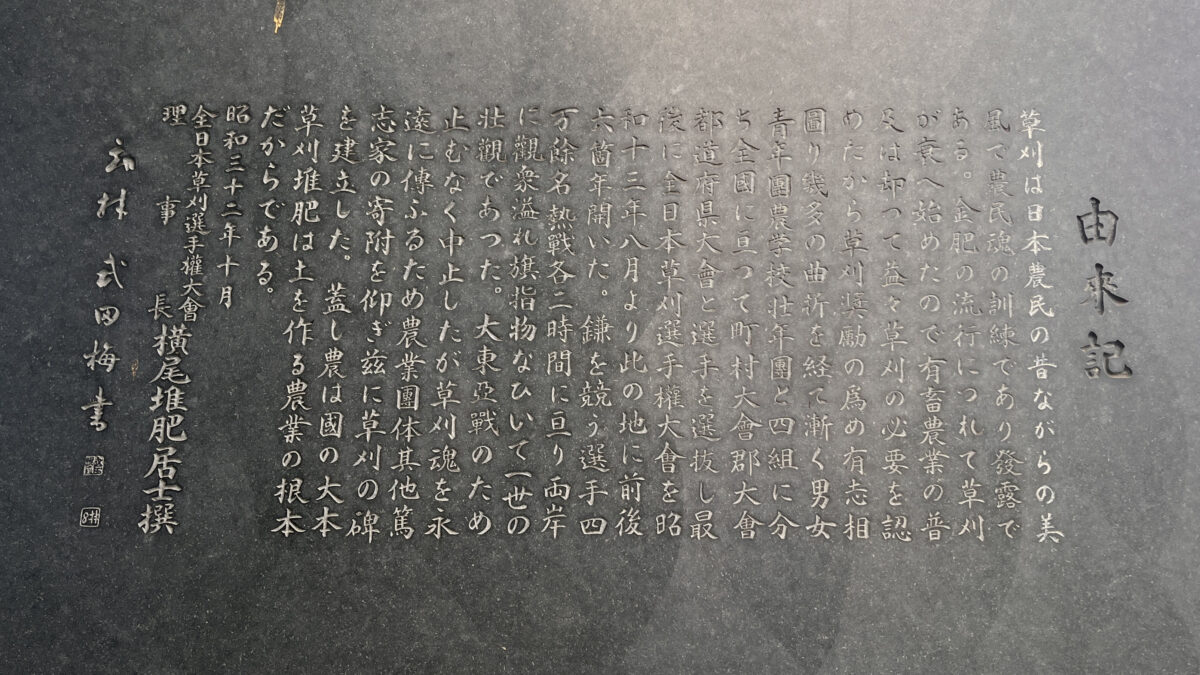 由來記
草刈は日本農民の昔ながらの美
風で農民魂の訓練であり發露で
ある。金肥の流行につれて草刈
が衰へ始めたので有畜農業の普
及は却つて益々草刈の必要を認
めたから草刈奬勵の爲め有志相
圖り幾多の曲折を経て漸く男女
青年團農学校壮年團と四組に分
ち全國に亘って町村大會郡大會
都道府県大會と選手を選抜し最
後に全日本草刈選手權大會を昭
和十三年八月より此の地に前後
六箇年開いた。鎌を競う選手四
万餘名熱戦各二時間に亘り両岸
に觀衆溢れ旗指物なびいて一世の
壮觀であつた。大東亞戰のため
止むなく中止したが草刈魂を永
遠に傳ふるため農業團体其他篤
志家の寄附を仰ぎ茲に草刈の碑
を建立した。蓋し農は國の大本
草刈堆肥は土を作る農業の根本
だからである。
昭和三十二年十月
全日本草刈選手權大會
理事長 横尾堆肥居士撰
林 武田梅書